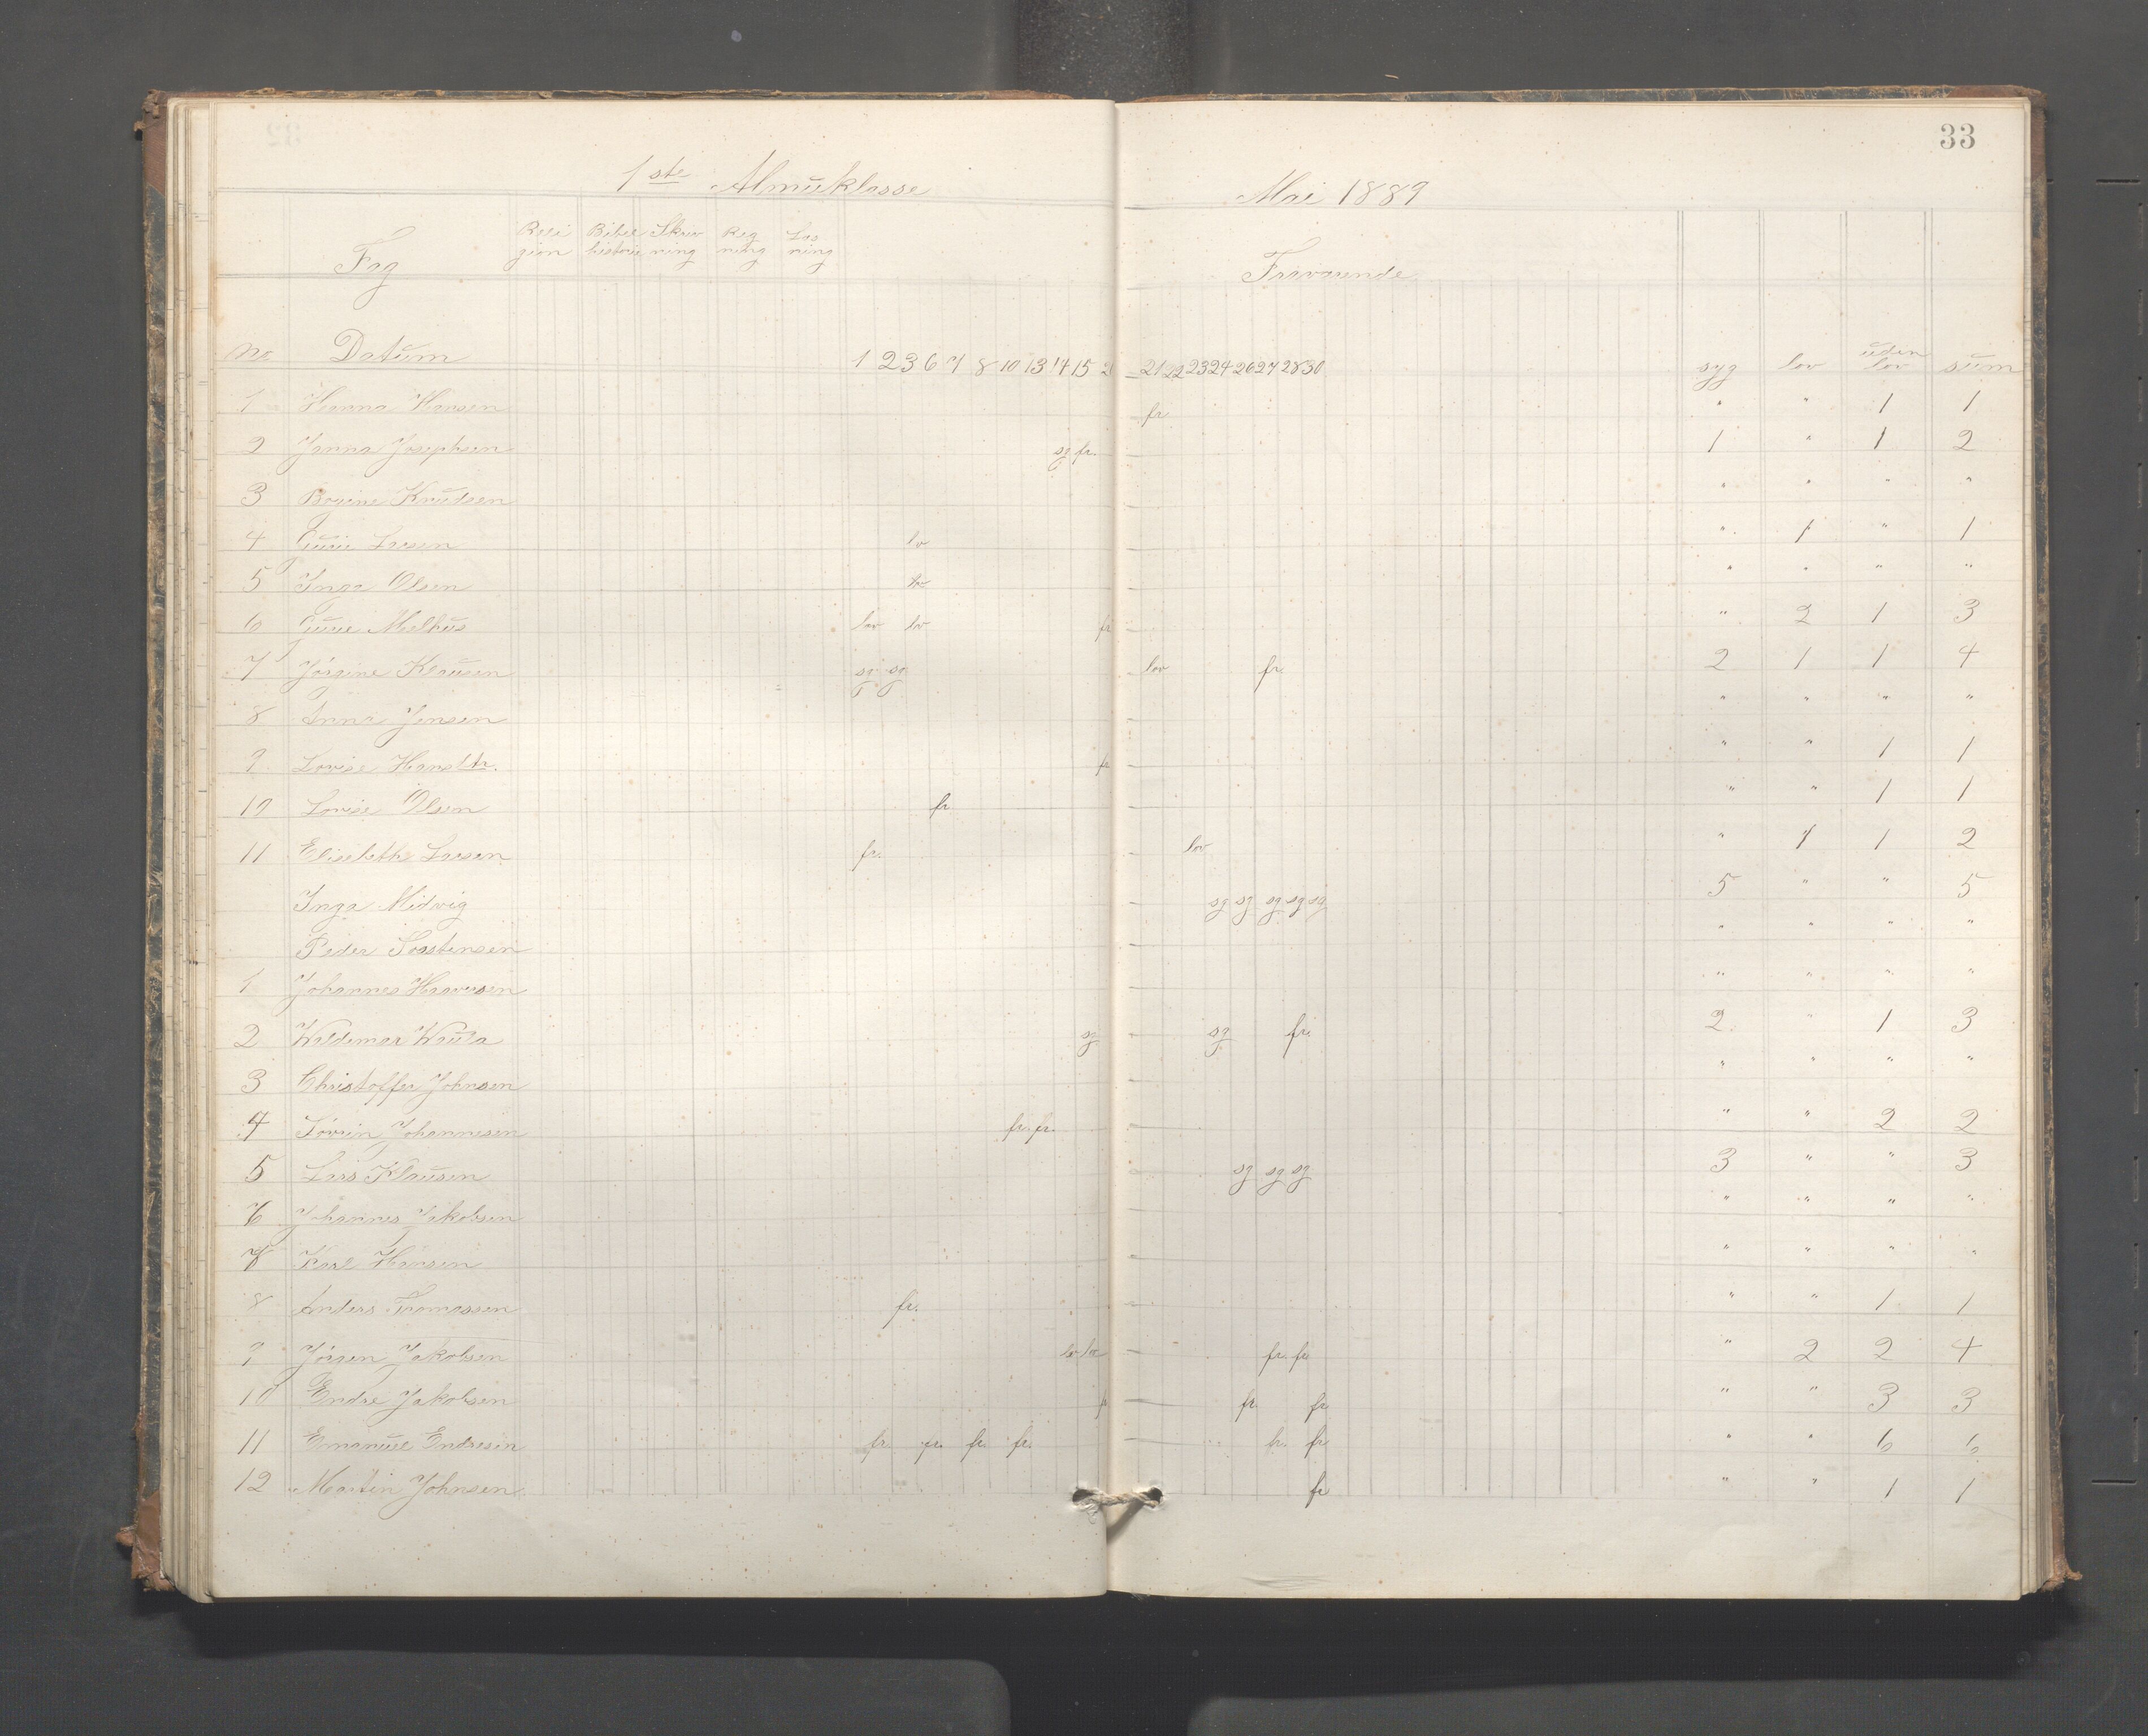 33
1ste Almueklasse Mai 1889
Fag Reli gion Bibel historie Skriv ning Reg ning Læs ning Fraværende
No Datum 1 2 3 6 7 8 10 13 14 15 21 22 23 24 26 27 28 30 syg lov uden lov sum
1 Hanna Hansen fr " " 1 1
2 Janna Josephsen sg fr. 1 " 1 2
3 Bogine Knudsen " " " "
4 Gurie Larsen lov " 1 " 1
5 Inga Olsen " " " "
6 Gurie Melhus lov lov fr " 2 1 3
7 Jørgine Klausen sg sg lov fr. 2 1 1 4
8 Anna Jensen " " " "
9 Lovise Hansdtr. fr " " 1 1
10 Lovise Olsen fr " " 1 1
11 Elisabeth Larsen fr. lov " 1 1 2
Inga Midvig sg sg sg sg sg 5 " " 5
Peder Torstensen " " " "
1 Johannes Haaversen " " " "
2 Waldemar Waula sg sg fr. 2 " 1 3
3 Christoffer Johnsen " " " "
4 Tørrin Johannesen fr. fr. " " 2 2
5 Lars Klausen sg sg sg 3 " " 3
6 Johannes Jakobsen " " " "
7 Karl Hansen " " " "
8 Anders Tomassen fr. " " 1 1
9 Jørgen Jakobsen lov lov fr. fr. " 2 2 4
10 Endre Jakobsen fr fr. fr " " 3 3
11 Emanuel Endresen fr. fr. fr. fr. fr. fr " " 6 6
12 Martin Johnsen fr " " 1 1